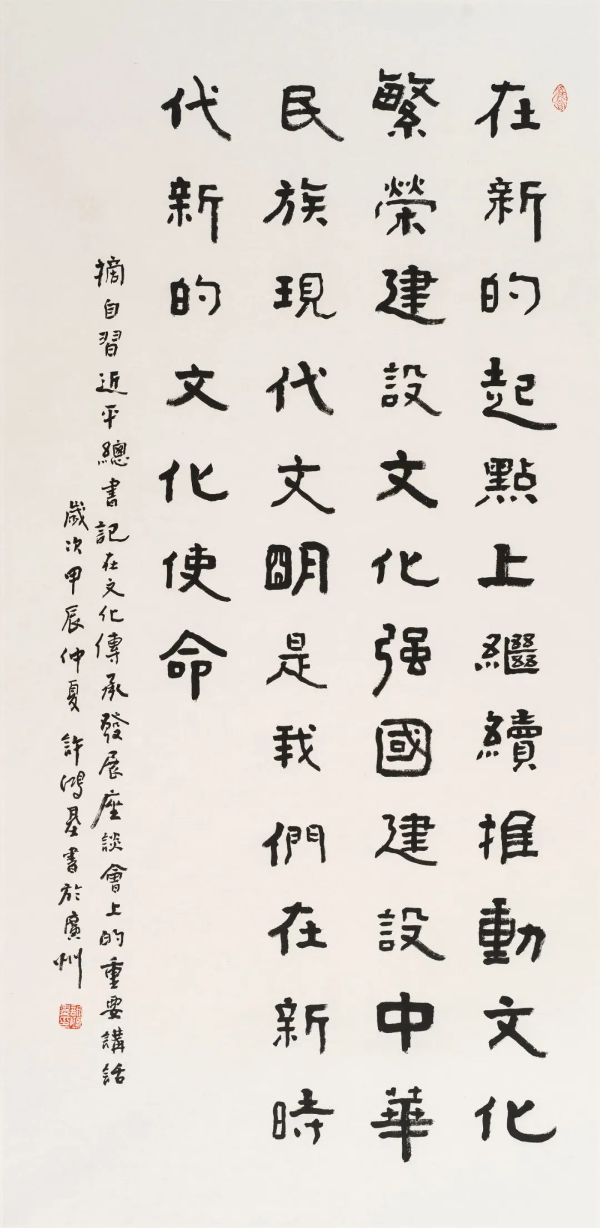 在新的起點上繼續推動文化
繁榮建設文化强國建設中華
民族現代文明是我們在新時
代新的文化使命
摘自習近平總書記在文化傳承發展座談會上的重要講話
歲次甲辰仲夏許鴻基書於廣州